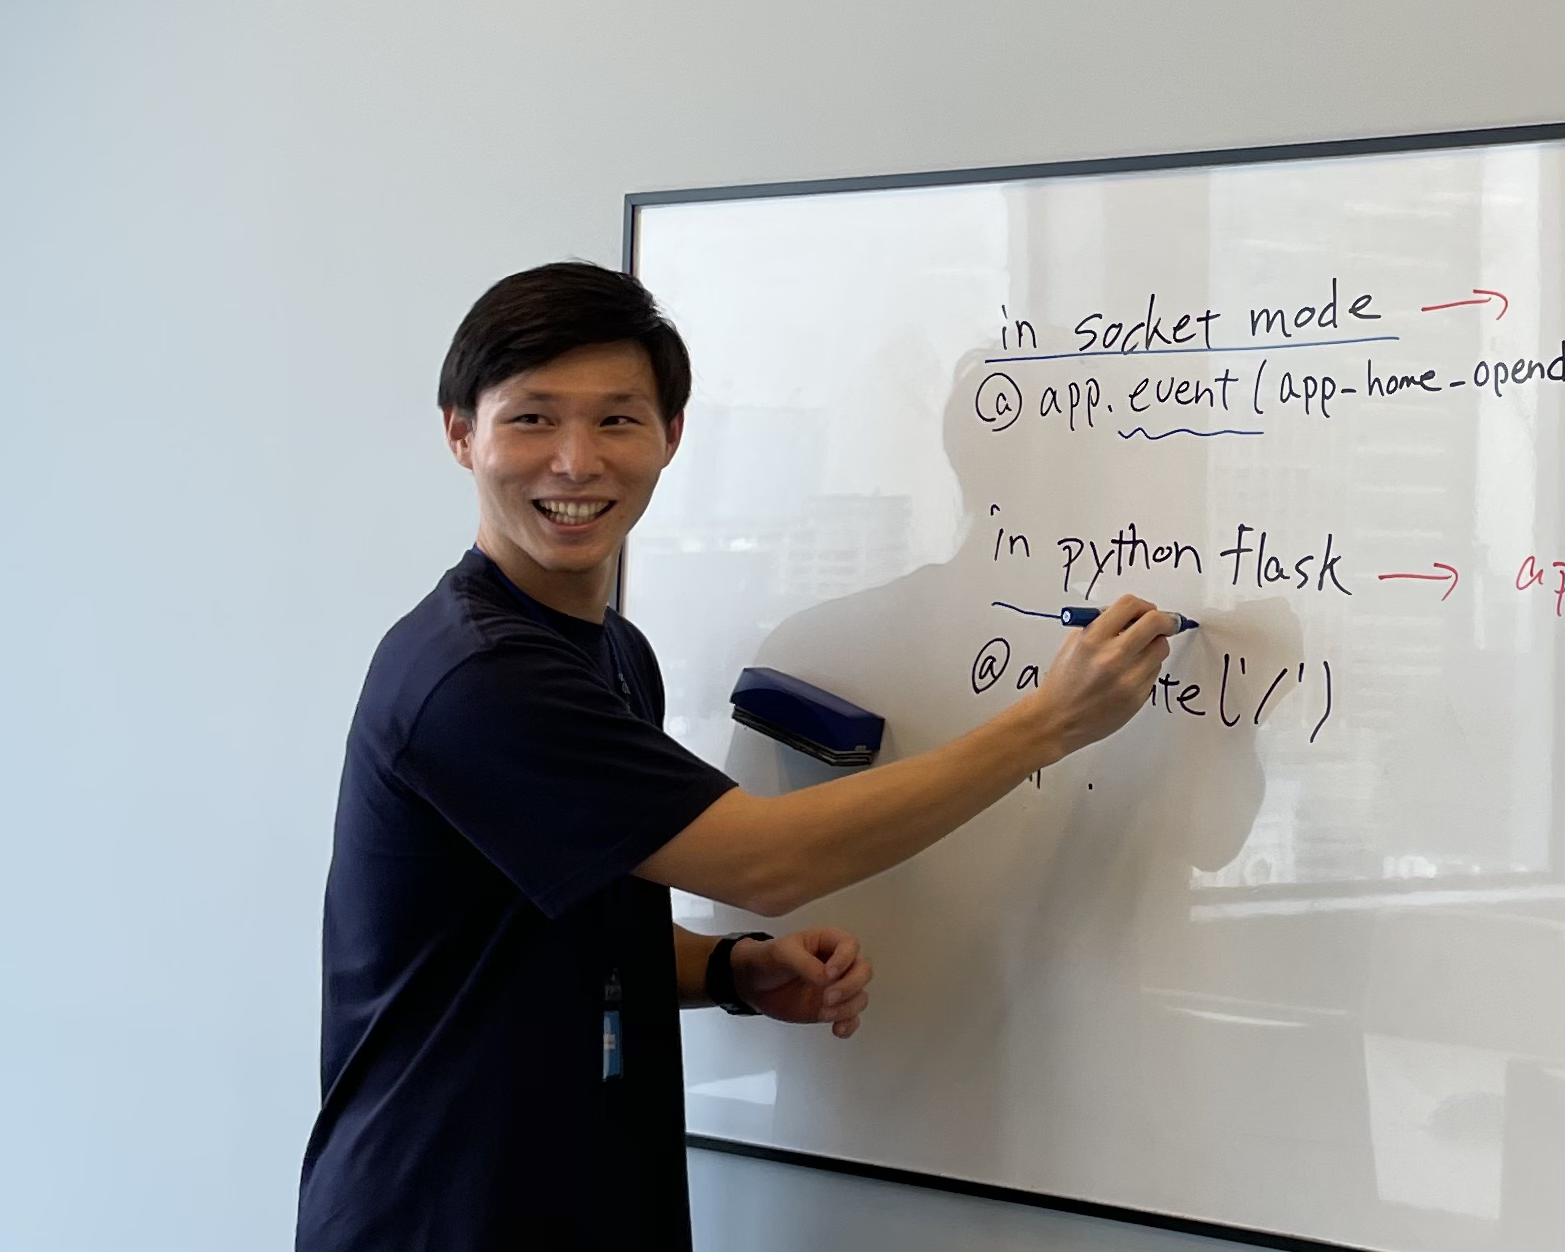 in socket mode →
@ app.event(app-home-opend
in python flask →
@